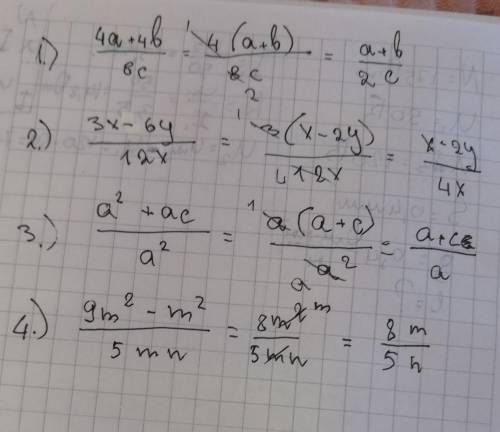 1.) (4a+4b)/(8c) = (4(a+b))/(8c) = (a+b)/(2c)
2.) (3x-6y)/(12x) = (3(x-2y))/(12x) = (x-2y)/(4x)
3.) (a²+ac)/(a²) = (a(a+c))/(a²) = (a+c)/(a)
4.) (9m²-m²)/(5mn) = (8m²)/(5mn) = (8m)/(5n)